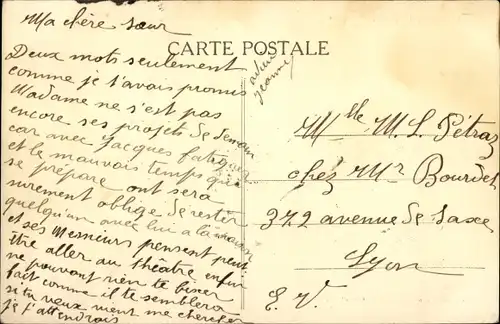 Ma chère sœur
CARTE POSTALE
Deux mots seulement
comme je t'avais promis
Madame ne s'est pas
encore ses projets de demain
car avec Jacques fatigué
et le mauvais temps qui
se prépare ont sera
surement oblige de rester
quelqu'un avec lui a la maison
et ses Messieurs pensent peut
être aller au théâtre enfin
ne pouvont rien te
fait comme il te semblera
si tu veux vient me chercher
je t'attendrais
adieu
Jeanne
Mlle M. L. Pétraz
chez Mr Bourdet
372 avenue de Saxe
Lyon
E. V.